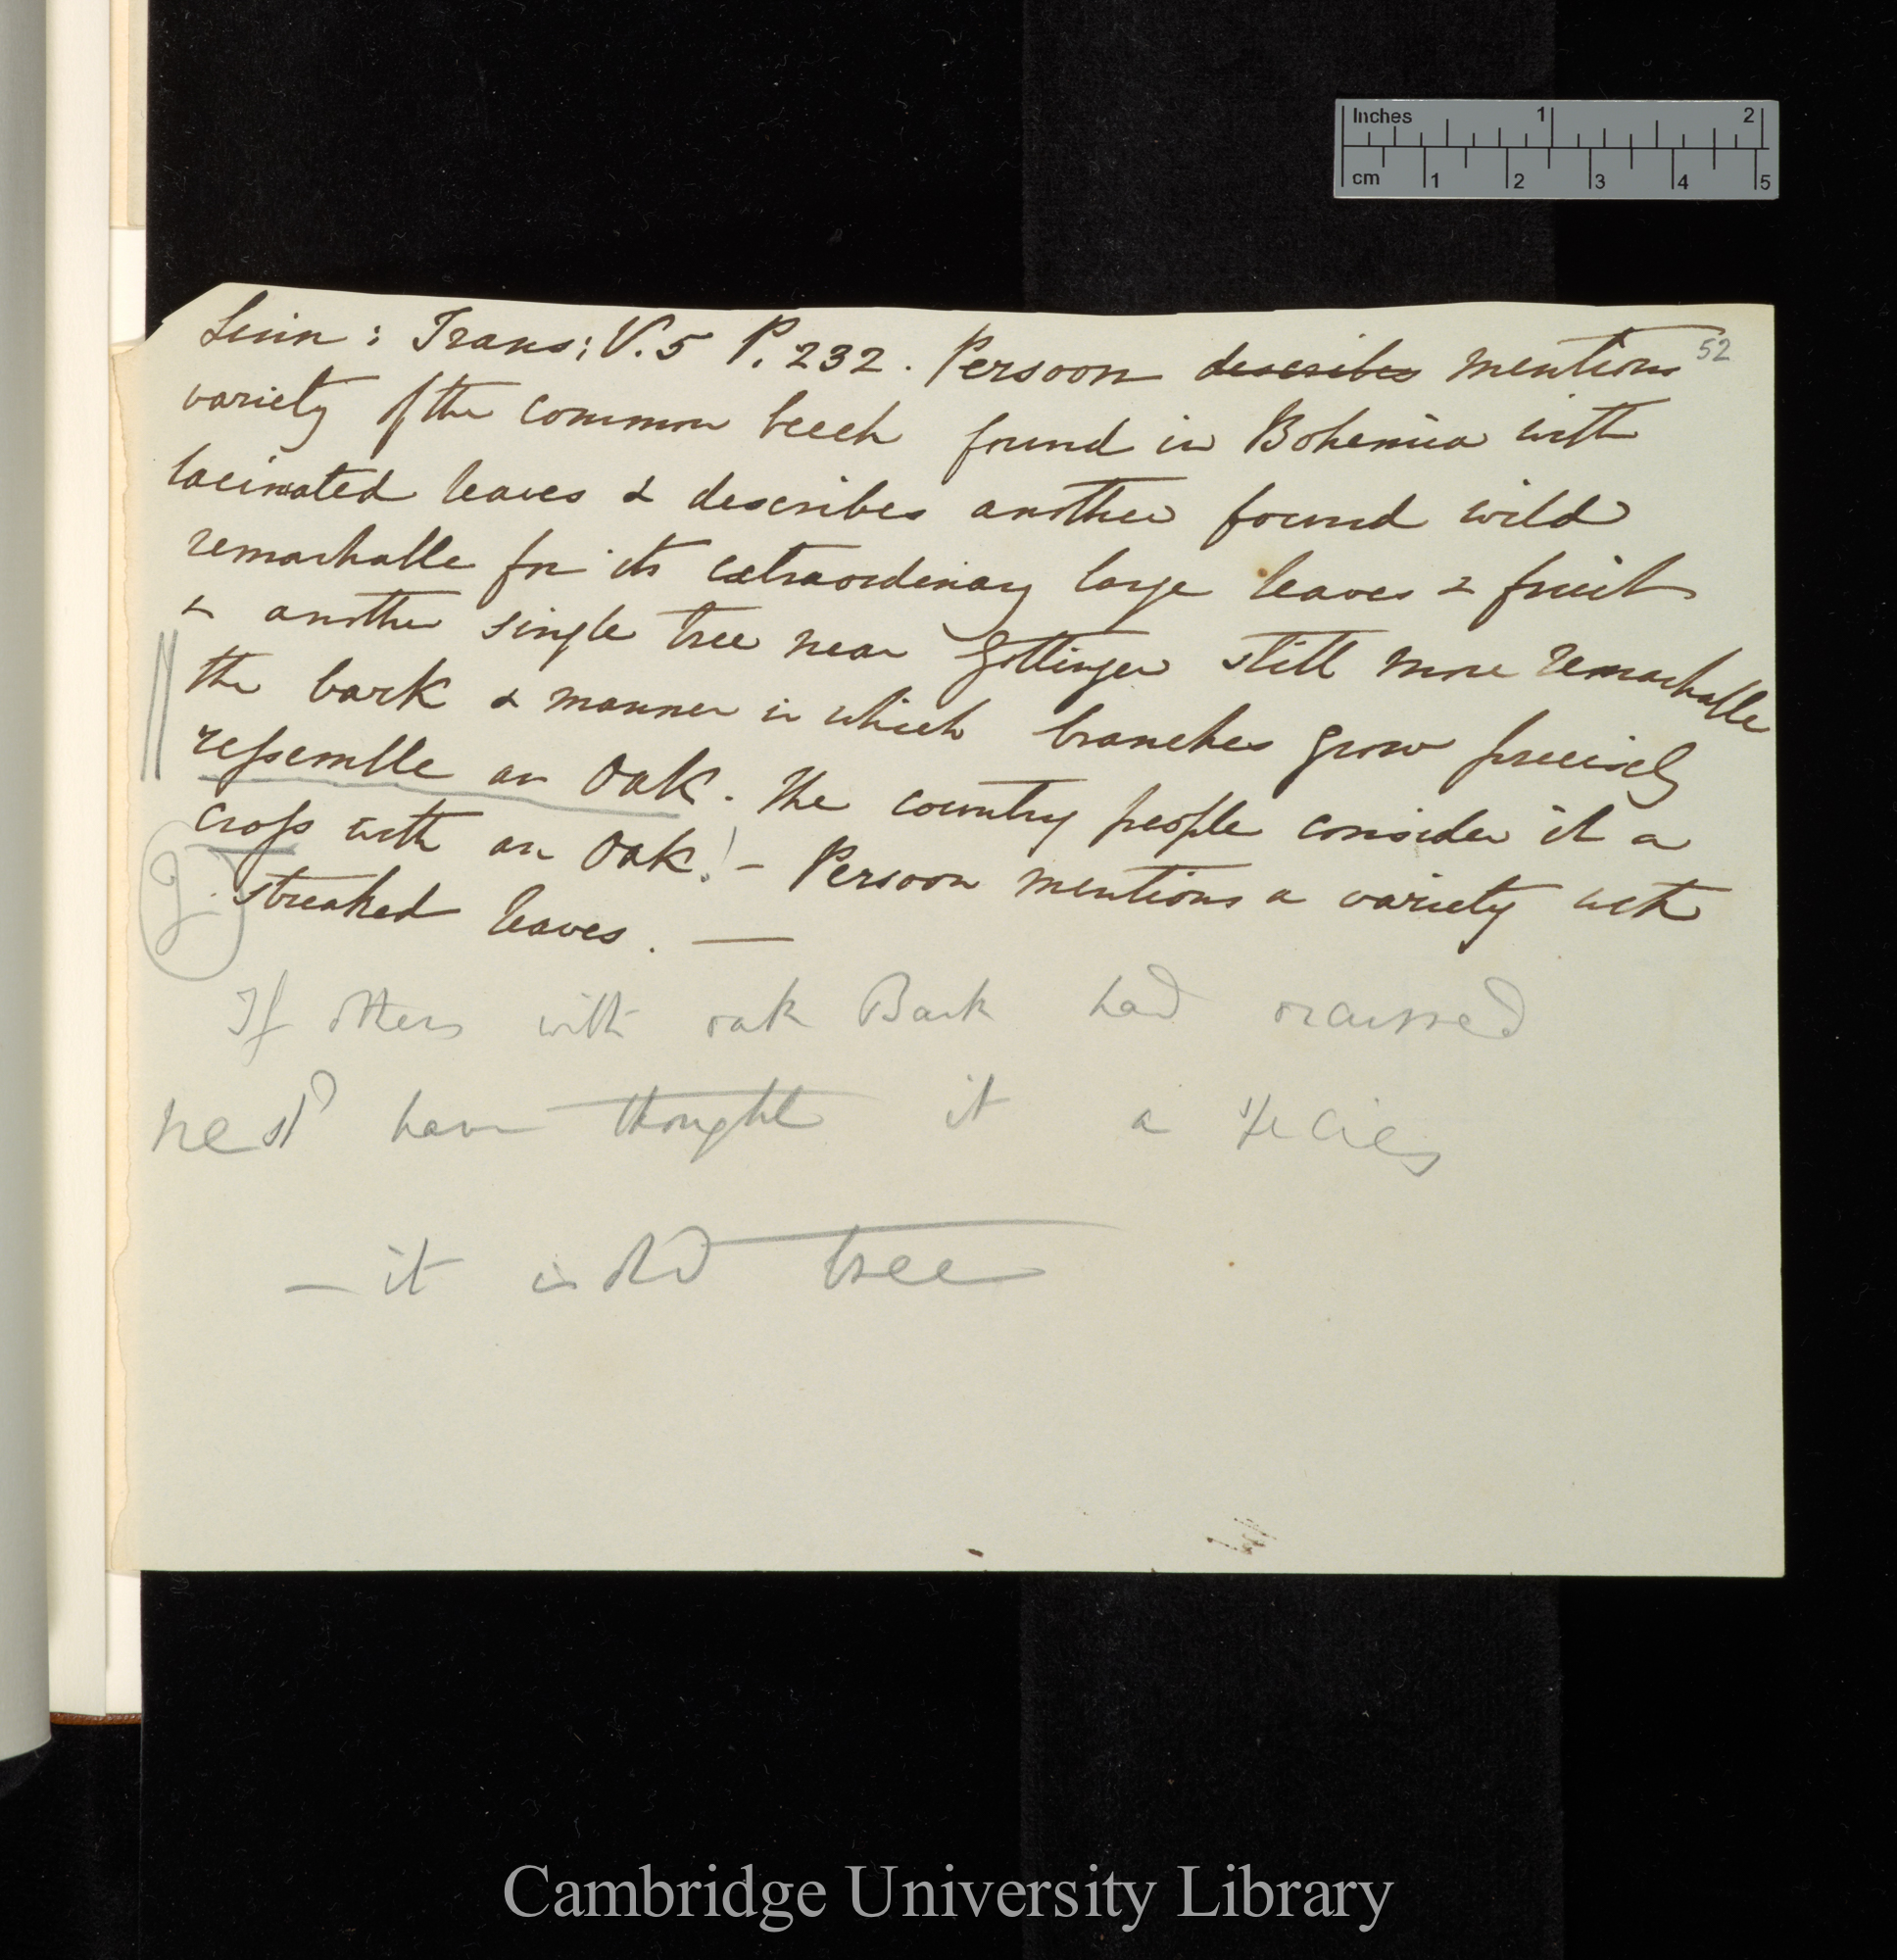 Inches 1 2
cm 1 2 3 4 5
52
Linn: Trans: V. 5 P. 232. Persoon describes mentions
variety of the common beech found in Bohemia with
lacinated leaves & describes another found wild
remarkable for its extraordinary large leaves & fruit
& another single tree near Gottingen still more remarkable
the bark & manner in which branches grow precisely
ressemble an Oak. The country people consider it a
cross with an Oak! – Persoon mentions a variety with
streaked leaves. —
If others with oak Bark had occurred
have thought it a species
— it is old tree
Cambridge University Library